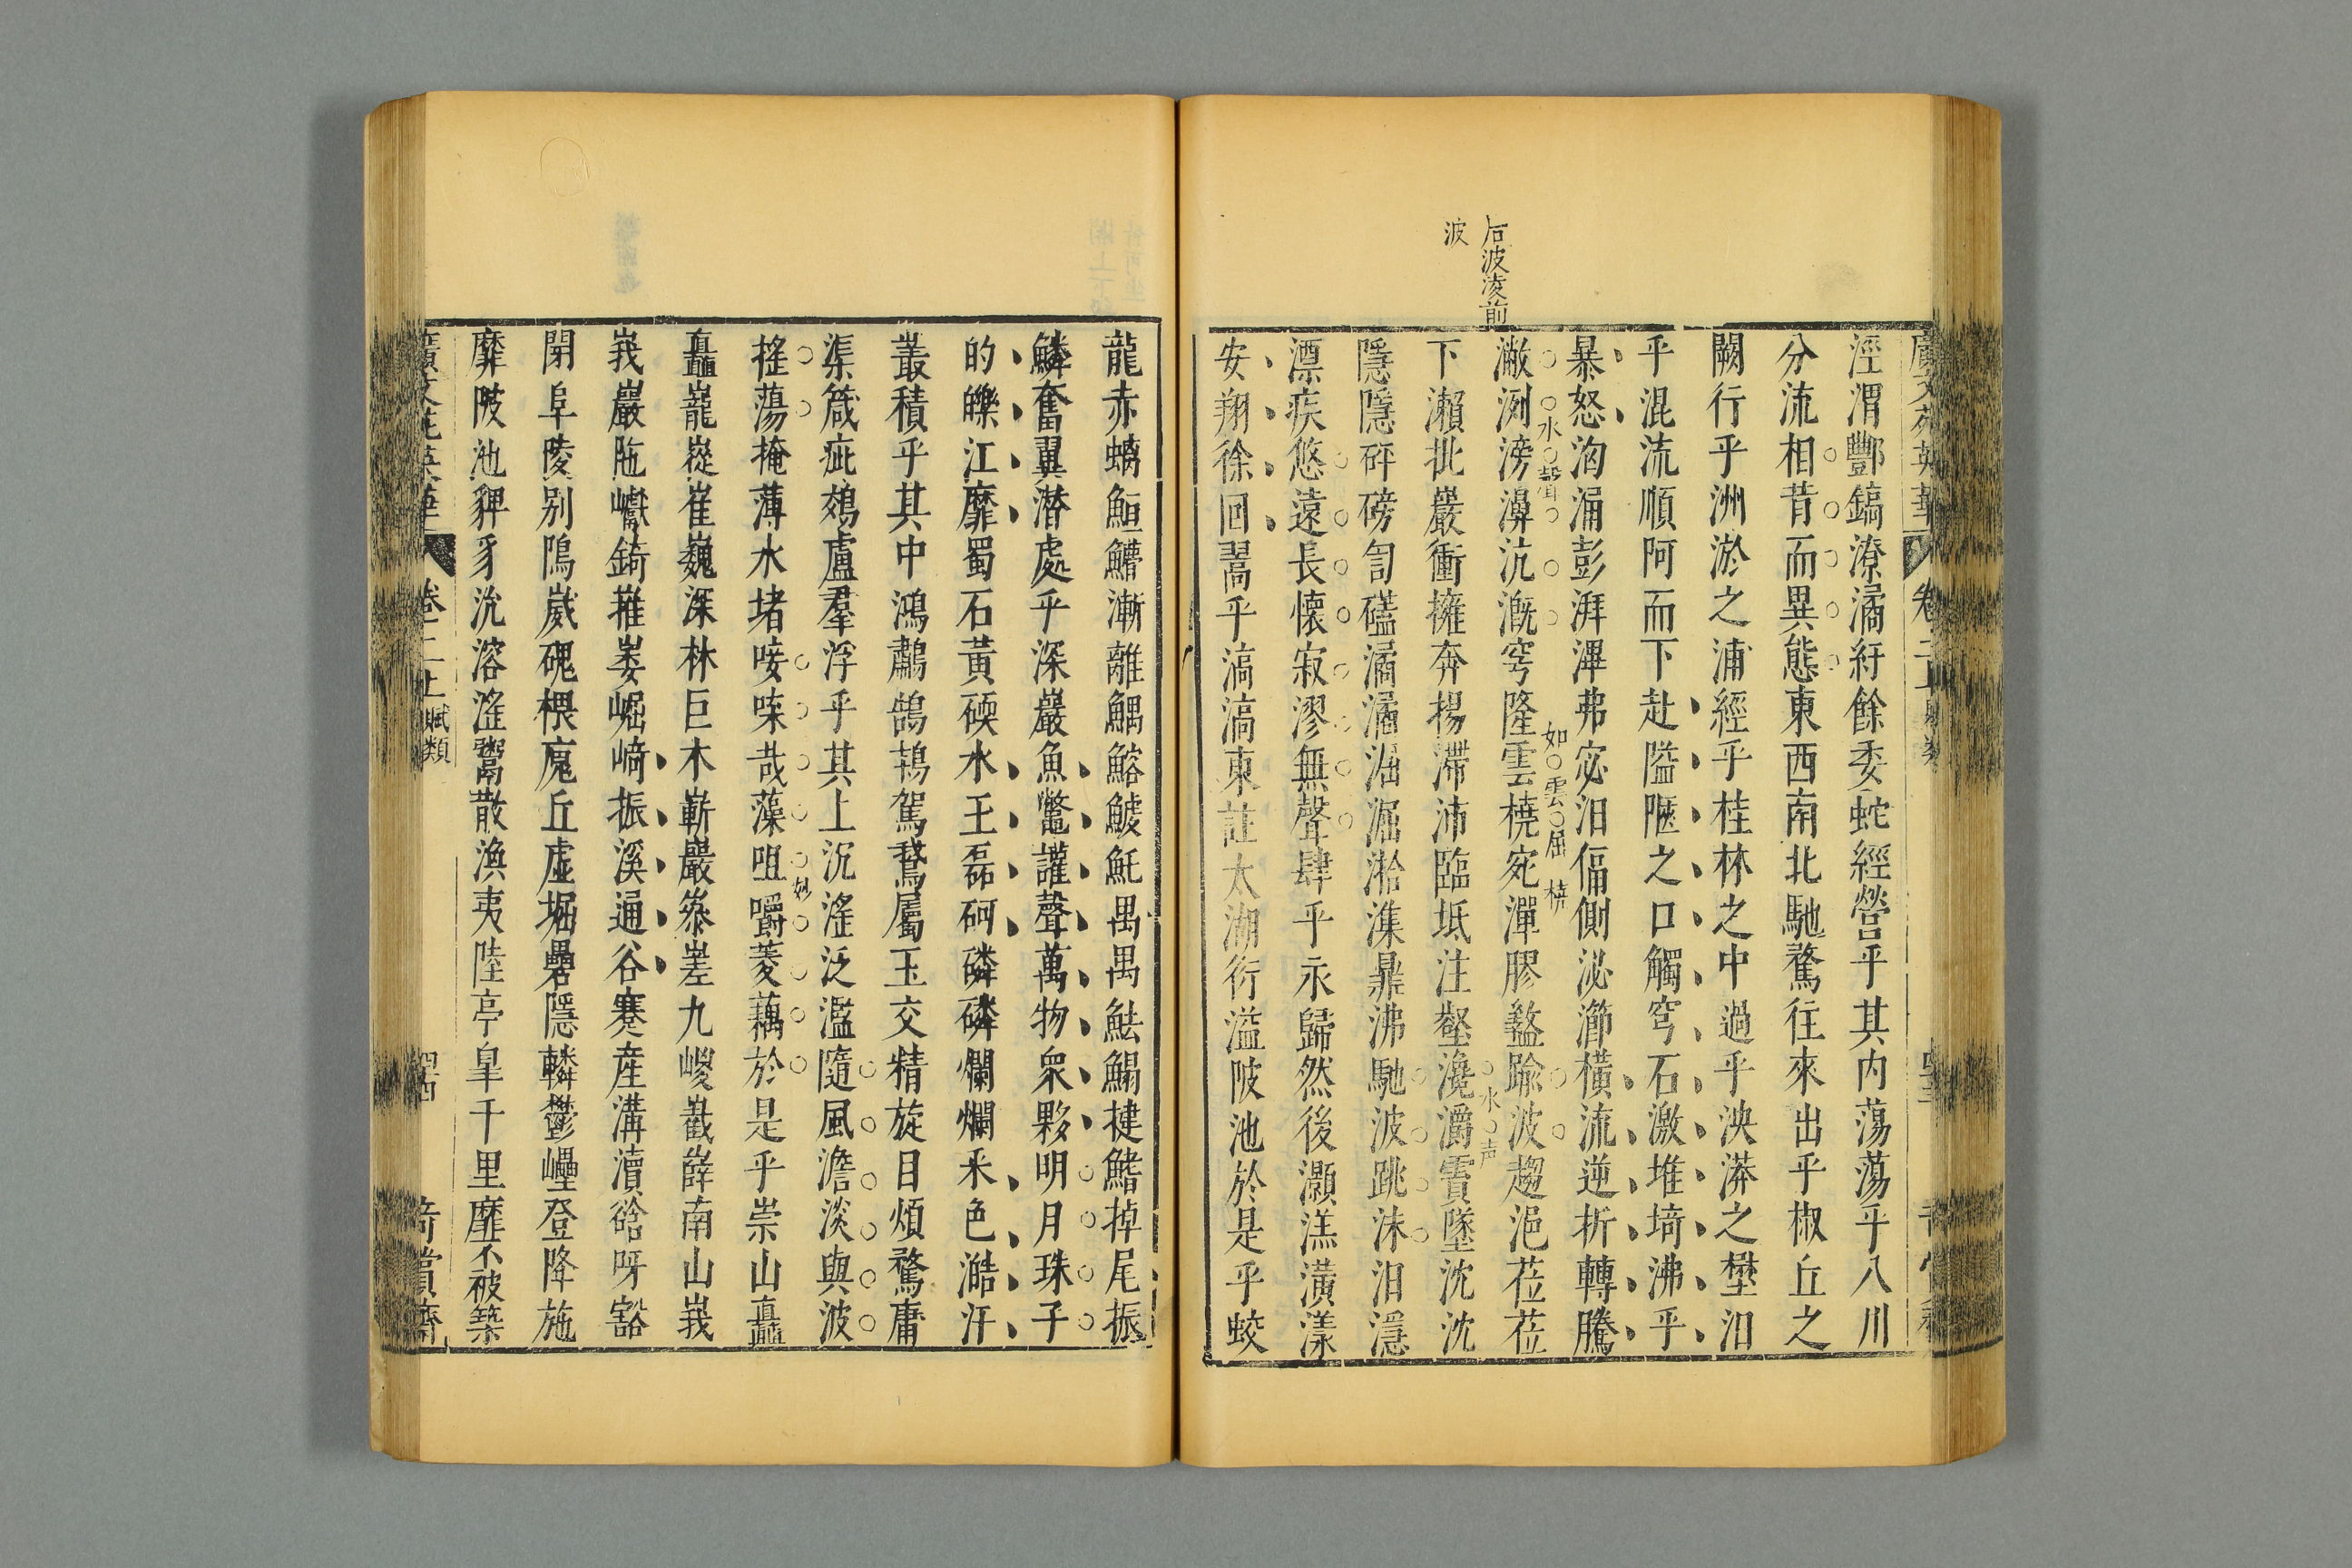 后波凌前
波
涇渭酆鎬潦潏紆餘委蛇經營乎其内蕩蕩乎八川
分流相背而異態東西南北馳騖往來出乎椒丘之
闕行乎洲淤之浦經乎桂林之中過乎泱漭之壄汩
乎混流順阿而下赴隘陿之口觸穹石激堆埼沸乎
暴怒洶涌彭湃滭弗宓汨偪側泌瀄橫流逆折轉騰
水聲
潎洌滂濞沆漑穹隆雲橈宛潬膠盭踰波趨浥莅莅
如雲屈橈
下瀨批巖衝擁奔揚滯沛臨坻注壑瀺灂霣墜沈沈
水声
隱隱砰磅訇礚潏潏淈淈湁潗鼎沸馳波跳沫汨㶏
漂疾悠遠長懷寂漻無聲肆乎永歸然後灝溔潢漾
安翔徐回翯乎滈滈東註太湖衍溢陂池於是乎蛟
龍赤螭䱎䲛漸離鰅鰫鰬魠禺禺魼鰨揵鰭掉尾振
鱗奮翼潛處乎深巖魚鼈讙聲萬物衆夥明月珠子
的皪江靡蜀石黄碝水王磊砢磷磷爛爛釆色澔汗
叢積乎其中鴻鷫鵠鴇駕鵞屬玉交精旋目煩鶩庸
渠箴疵鵁盧羣浮乎其上沉淫泛濫隨風澹淡與波
摇蕩掩薄水堵唼喋哉藻咀嚼菱藕於是乎崇山矗
妙
矗巃嵸崔巍深林巨木嶄巖參差九嵕嶻嶭南山峩
峩巖阤甗錡嶊崣崛崎振溪通谷蹇産溝瀆谽呀豁
閉阜陵别隝崴磈㟪廆丘虛堀礨隱轔鬱𡾊登降施
靡陂池貏豸沇溶淫鬻散渙夷陸亭皐千里靡不被築
卷二上
賦類
四四